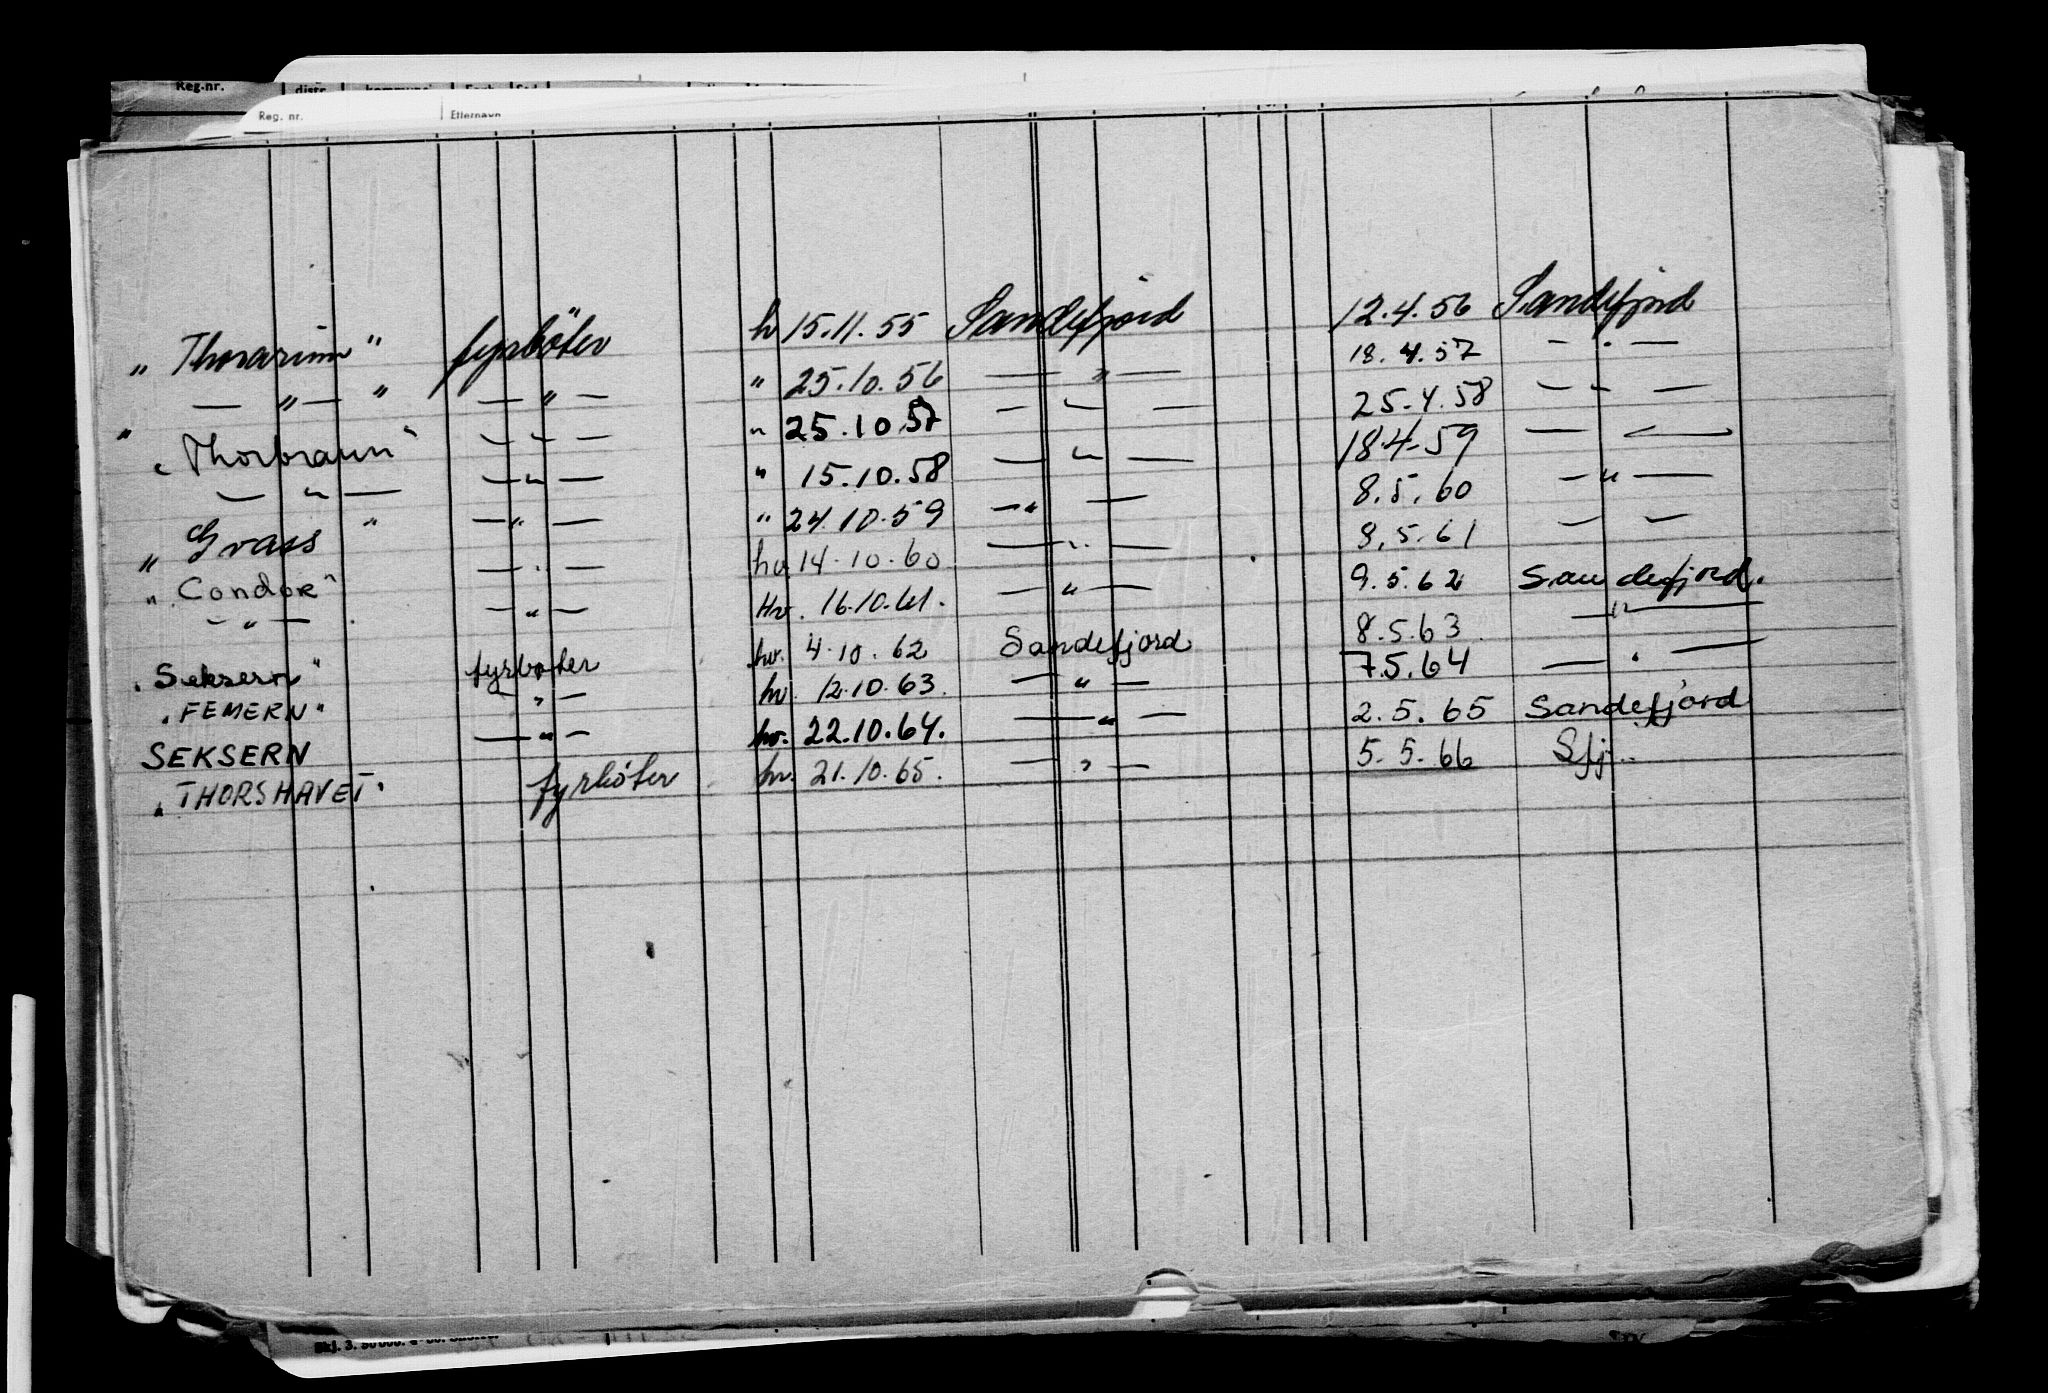 Reg.nr. distr. kommune
Reg. nr. Etternavn
" Thorarinn " fyrbøter h 15.11.55 Sandefjord 12.4.56 Sandefjord
— " — " — " — " 25.10.56 — " — 18.4.57 — " —
" Thorbrann " — " — " 25.10.57 — " — 25.4.58 — " —
— " — — " — " 15.10.58 — " — 18.4.59 — " —
" Gvass " — " — " 24.10.59 — " — 8.5.60 — " —
" Condor " — " — hv. 14.10.60 — " — 8.5.61 — " —
— " — — " — Hv. 16.10.61. — " — 9.5.62 Sandefjord.
" Seksern " fyrbøter hv. 4.10.62 Sandefjord 8.5.63. — " —
" FEMERN " — " — hv. 12.10.63. — " — 7.5.64 — " —
SEKSERN — " — hv. 22.10.64. — " — 2.5.65 Sandefjord
" THORSHAVET " fyrbøter hv. 21.10.65. — " — 5.5.66 Sfj.
Skj. 3.